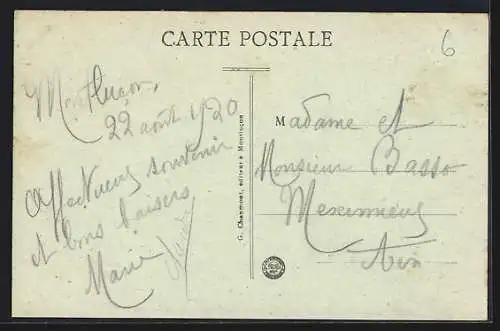 CARTE POSTALE
6
Montluçon
22 août 1920
Affectueux souvenir
et bons baisers
Marie
G. Chaumont, éditeur à Montluçon
Madame et
Monsieur Basso
Meximieux
Ain